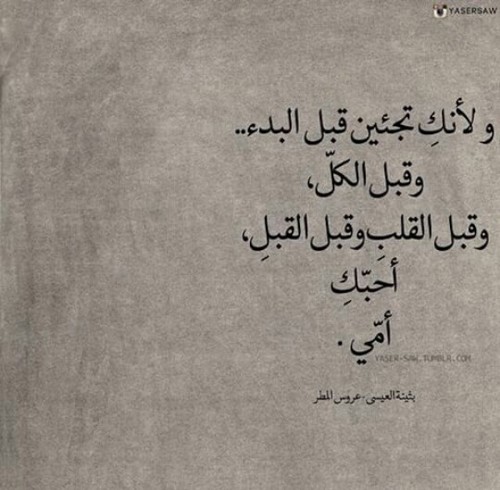 YASERSAW
و لأنكِ تجئين قبل البدء..
وقبل الكلّ،
وقبل القلبِ وقبل القبلِ،
أحبّكِ
أمّي .
YASER-SAW.TUMBLR.COM
بثينة العيسى-عروس المطر